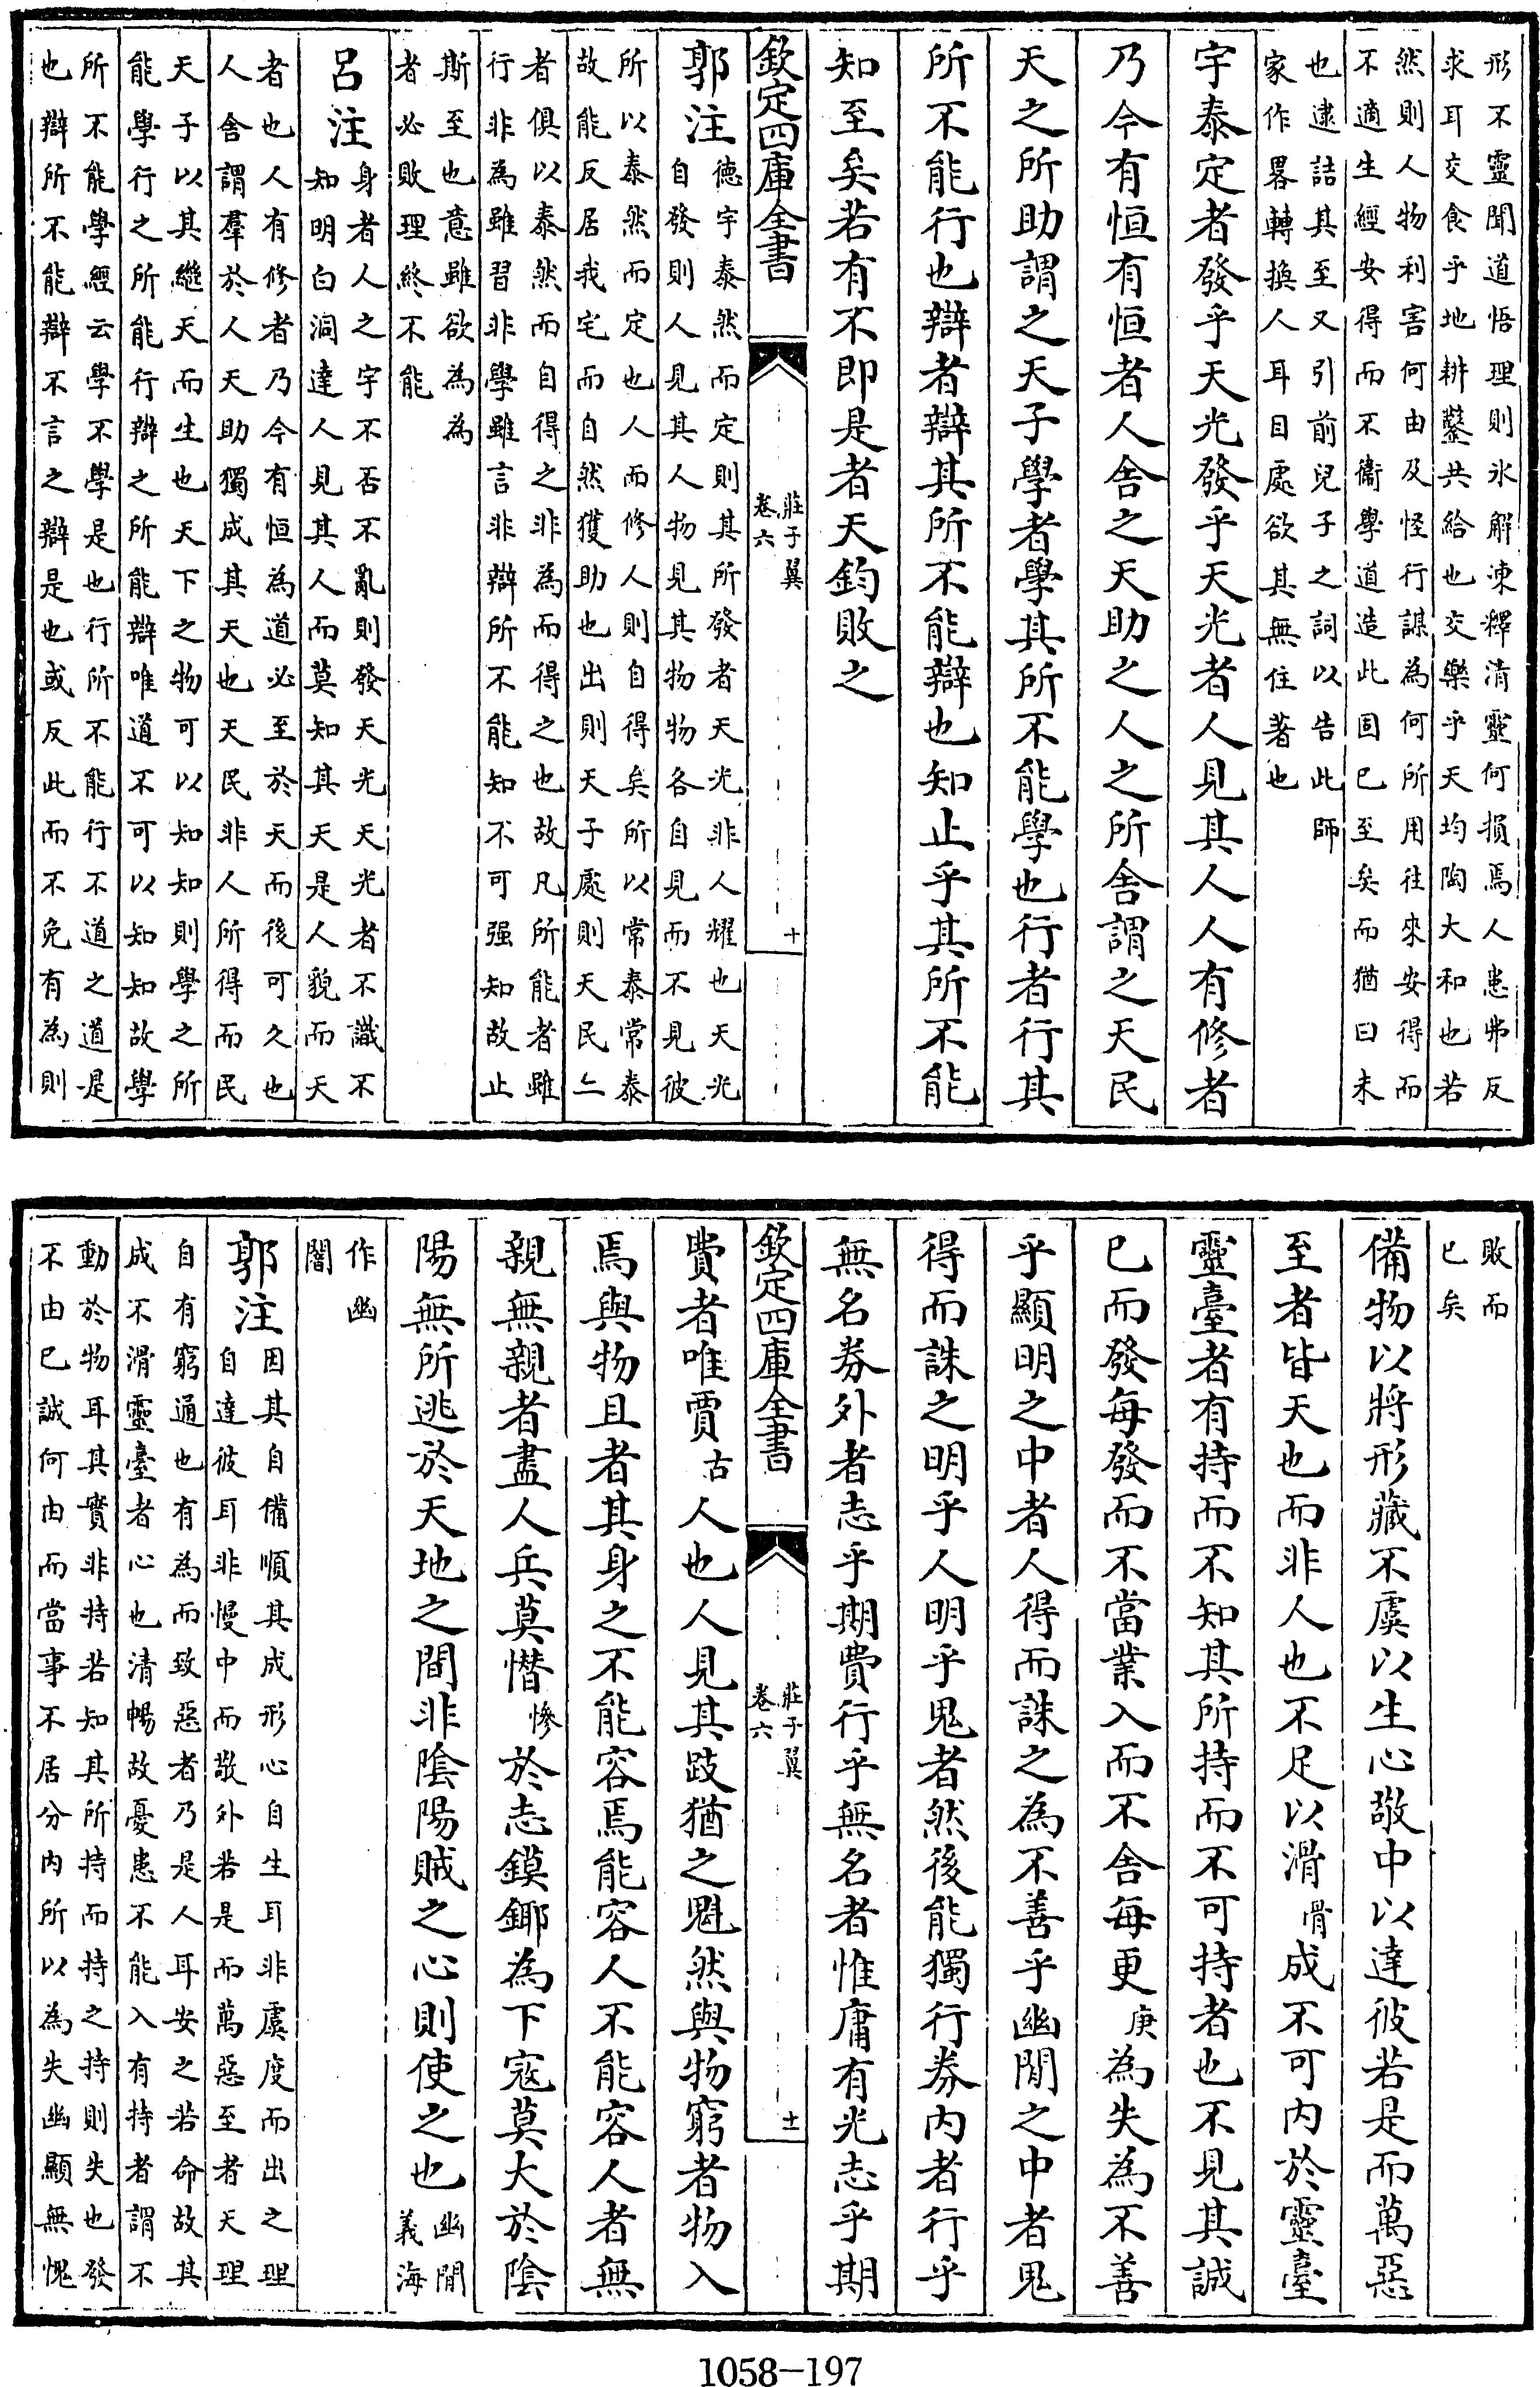 形不靈聞道悟理則氷解凍釋清靈何損焉人患弗反
求耳交食乎地耕鑿共給也交樂乎天均陶大和也若
然則人物利害何由及怪行謀為何所用往來安得而
不適生經安得而不衞學道造此固已至矣而猶曰未
也逮詰其至又引前兒子之詞以告此師
家作畧轉換人耳目處欲其無住著也
宇泰定者發乎天光發乎天光者人見其人人有修者
乃今有恒有恒者人舎之天助之人之所舎謂之天民
天之所助謂之天子學者學其所不能學也行者行其
所不能行也辯者辯其所不能辯也知止乎其所不能
知至矣若有不即是者天鈞敗之
欽定四庫全書
莊子翼
卷六
十
郭注
德宇泰然而定則其所發者天光非人耀也天光
自發則人見其人物見其物物各自見而不見彼
所以泰然而定也人而修人則自得矣所以常泰常泰
故能反居我宅而自然獲助也出則天子處則天民二
者俱以泰然而自得之非為而得之也故凡所能者雖
行非為雖習非學雖言非辯所不能知不可强知故止
斯至也意雖欲為為
者必敗理終不能
呂注
身者人之宇不否不亂則發天光天光者不識不
知明白洞達人見其人而莫知其天是人貌而天
者也人有修者乃今有恒為道必至於天而後可久也
人舎謂羣於人天助獨成其天也天民非人所得而民
天子以其繼天而生也天下之物可以知知則學之所
能學行之所能行辯之所能辯唯道不可以知知故學
所不能學經云學不學是也行所不能行不道之道是
也辯所不能辯不言之辯是也或反此而不免有為則
敗而
已矣
備物以將形藏不虞以生心敬中以達彼若是而萬惡
至者皆天也而非人也不足以滑骨成不可内於靈臺
靈臺者有持而不知其所持而不可持者也不見其誠
已而發每發而不當業入而不舎每更庚為失為不善
乎顯明之中者人得而誅之為不善乎幽閒之中者鬼
得而誅之明乎人明乎鬼者然後能獨行券内者行乎
無名券外者志乎期費行乎無名者惟庸有光志乎期
費者唯賈古人也人見其跂猶之魁然與物窮者物入
欽定四庫全書
莊子翼
卷六
十一
焉與物且者其身之不能容焉能容人不能容人者無
親無親者盡人兵莫憯慘於志鏌鋣為下寇莫大於陰
陽無所逃於天地之間非陰陽賊之心則使之也
幽閒
義海
作幽
闇
郭注
因其自備順其成形心自生耳非虞度而出之理
自達彼耳非慢中而敬外若是而萬惡至者天理
自有窮通也有為而致惡者乃是人耳安之若命故其
成不滑靈臺者心也清暢故憂患不能入有持者謂不
動於物耳其實非持若知其所持而持之持則失也發
不由已誠何由而當事不居分内所以為失幽顯無愧
1058-197